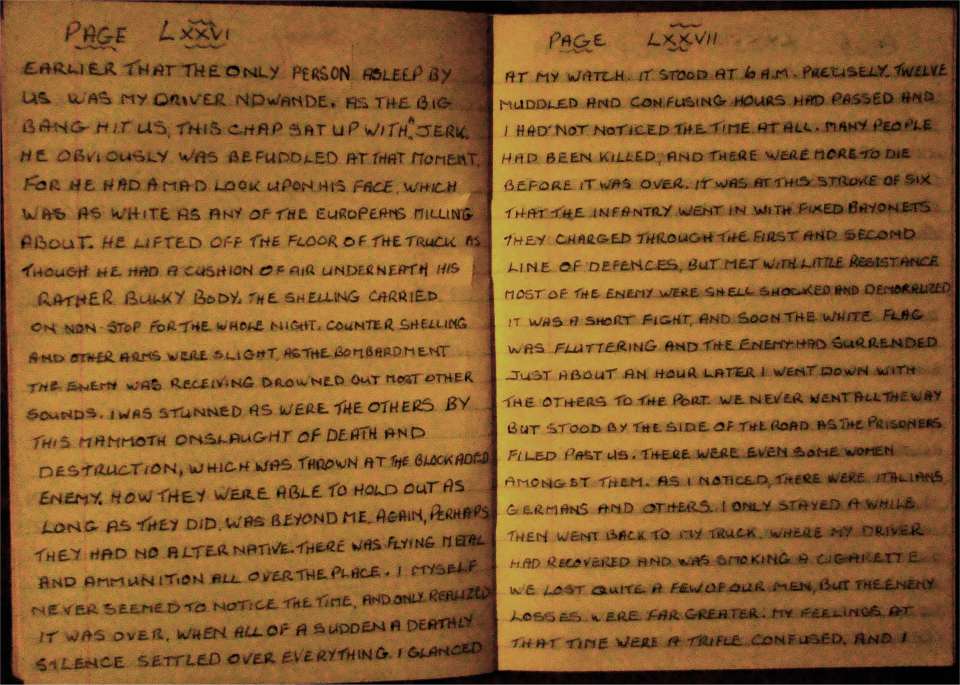 PAGE LXXVI
EARLIER THAT THE ONLY PERSON ASLEEP BY
US WAS MY DRIVER NDWANDE. AS THE BIG
BANG HIT US, THIS CHAP SAT UP WITH A JERK.
HE OBVIOUSLY WAS BEFUDDLED AT THAT MOMENT,
FOR HE HAD A MAD LOOK UPON HIS FACE, WHICH
WAS AS WHITE AS ANY OF THE EUROPEANS MILLING
ABOUT. HE LIFTED OFF THE FLOOR OF THE TRUCK AS
THOUGH HE HAD A CUSHION OF AIR UNDERNEATH HIS
RATHER BULKY BODY. THE SHELLING CARRIED
ON NON-STOP FOR THE WHOLE NIGHT. COUNTER SHELLING
AND OTHER ARMS WERE SLIGHT, AS THE BOMBARDMENT
THE ENEMY WAS RECEIVING DROWNED OUT MOST OTHER
SOUNDS. I WAS STUNNED AS WERE THE OTHERS BY
THIS MAMMOTH ONSLAUGHT OF DEATH AND
DESTRUCTION, WHICH WAS THROWN AT THE BLOCKADED
ENEMY. HOW THEY WERE ABLE TO HOLD OUT AS
LONG AS THEY DID, WAS BEYOND ME. AGAIN, PERHAPS
THEY HAD NO ALTERNATIVE. THERE WAS FLYING METAL
AND AMMUNITION ALL OVER THE PLACE. I MYSELF
NEVER SEEMED TO NOTICE THE TIME, AND ONLY REALIZED
IT WAS OVER, WHEN ALL OF A SUDDEN A DEATHLY
SILENCE SETTLED OVER EVERYTHING. I GLANCED
PAGE LXXVII
AT MY WATCH. IT STOOD AT 6 A.M. PRECISELY. TWELVE
MUDDLED AND CONFUSING HOURS HAD PASSED AND
I HAD NOT NOTICED THE TIME AT ALL. MANY PEOPLE
HAD BEEN KILLED, AND THERE WERE MORE TO DIE
BEFORE IT WAS OVER. IT WAS AT THIS STROKE OF SIX
THAT THE INFANTRY WENT IN WITH FIXED BAYONETS
THEY CHARGED THROUGH THE FIRST AND SECOND
LINE OF DEFENCES, BUT MET WITH LITTLE RESISTANCE
MOST OF THE ENEMY WERE SHELL SHOCKED AND DEMORALIZED
IT WAS A SHORT FIGHT, AND SOON THE WHITE FLAG
WAS FLUTTERING AND THE ENEMY HAD SURRENDED
JUST ABOUT AN HOUR LATER I WENT DOWN WITH
THE OTHERS TO THE PORT. WE NEVER WENT ALL THE WAY
BUT STOOD BY THE SIDE OF THE ROAD AS THE PRISONERS
FILED PAST US. THERE WERE EVEN SOME WOMEN
AMONGST THEM. AS I NOTICED, THERE WERE ITALIANS
GERMANS AND OTHERS. I ONLY STAYED A WHILE
THEN WENT BACK TO MY TRUCK, WHERE MY DRIVER
HAD RECOVERED AND WAS SMOKING A CIGARETTE
WE LOST QUITE A FEW OF OUR MEN, BUT THE ENEMY
LOSSES WERE FAR GREATER. MY FEELINGS AT
THAT TIME WERE A TRIFLE CONFUSED. AND I